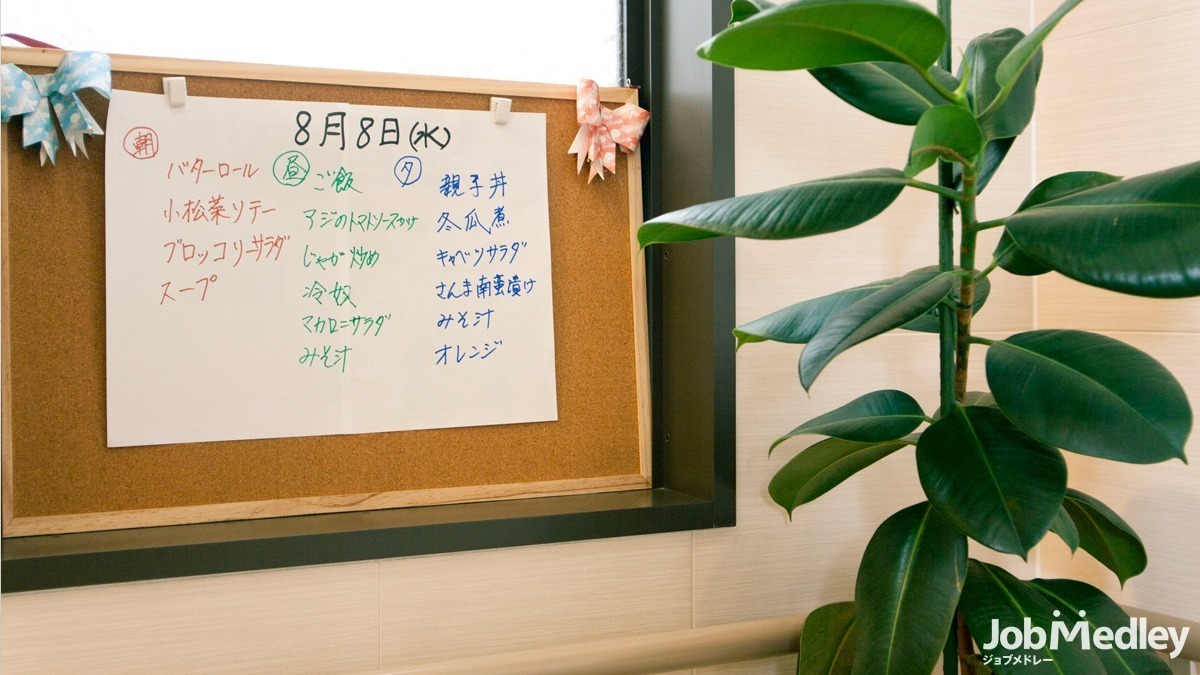 8月8日(水)
朝
バターロール
小松菜ソテー
ブロッコリーサラダ
スープ
昼
ご飯
アジのトマトソースかけ
じゃが炒め
冷奴
マカロニサラダ
みそ汁
夕
親子丼
冬瓜煮
キャベツサラダ
さんま南蛮漬け
みそ汁
オレンジ
JobMedley
ジョブメドレー